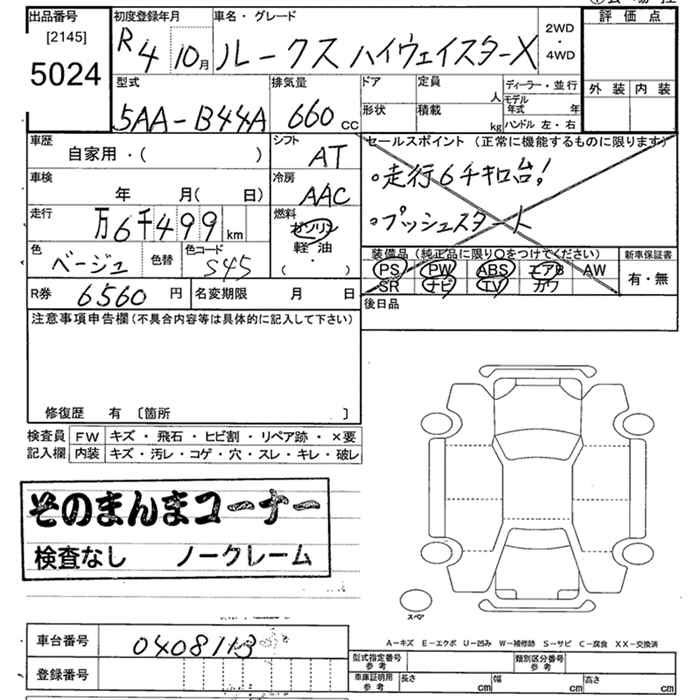 出品番号
[2145]
5024
初度登録年月
R4 10月
車名・グレード
ルークス ハイウェイスターX
2WD
・
4WD
評価点
外装 内装
型式
5AA-B44A
排気量
660cc
ドア
形状
定員
人
積載
kg
ディーラー・並行
モデル年式 年
ハンドル 左・右
車歴
自家用・( )
シフト
AT
車検
年 月( 日)
冷房
AAC
走行
万6千499km
燃料
ガソリン
軽油
( ・ )
色
ベージュ
色替
色コード
S45
R券
6560円
名変期限 月 日
セールスポイント (正常に機能するものに限ります)
。走行6千キロ台!
。プッシュスタート
装備品 (純正品に限り○をつけてください)
PS PW ABS エアB AW
SR ナビ TV カワ
新車保証書
有・無
後日品
注意事項申告欄(不具合内容等は具体的に記入して下さい)
修復歴 有 〔箇所 〕
検査員記入欄
FW キズ・飛石・ヒビ割・リペア跡・×要
内装 キズ・汚レ・コゲ・穴・スレ・キレ・破レ
そのまんまコーナー
検査なし ノークレーム
スペア
A-キズ E-エクボ U-凹み W-補修跡 S-サビ C-腐食 XX-交換済
車台番号
0408113
登録番号
型式指定番号 参考
類別区分番号 参考
車庫証明用 参考
長さ cm
幅 cm
高さ cm